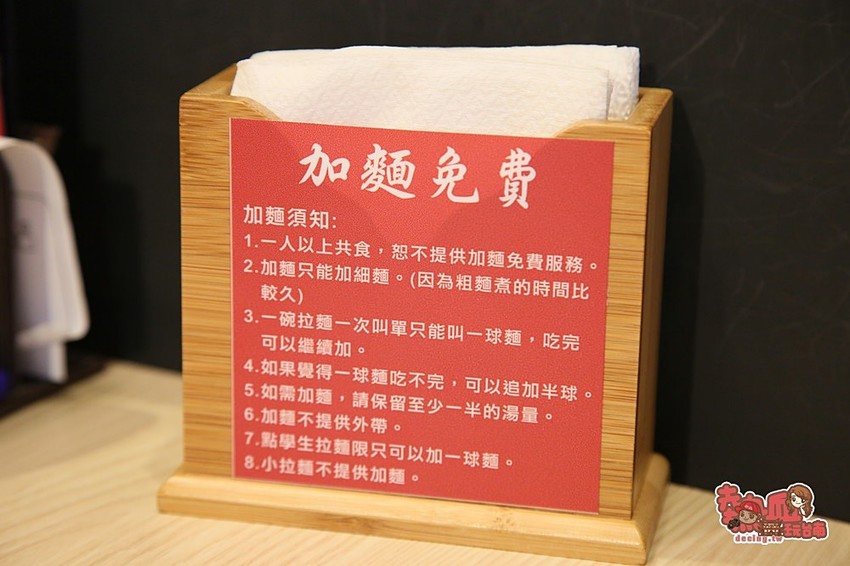 加麵免費
加麵須知:
1.一人以上共食，恕不提供加麵免費服務。
2.加麵只能加細麵。(因為粗麵煮的時間比
較久)
3.一碗拉麵一次叫單只能叫一球麵，吃完
可以繼續加。
4.如果覺得一球麵吃不完，可以追加半球。
5.如需加麵，請保留至少一半的湯量。
6.加麵不提供外帶。
7.點學生拉麵限只可以加一球麵。
8.小拉麵不提供加麵。
熱血玩台南
decing.tw